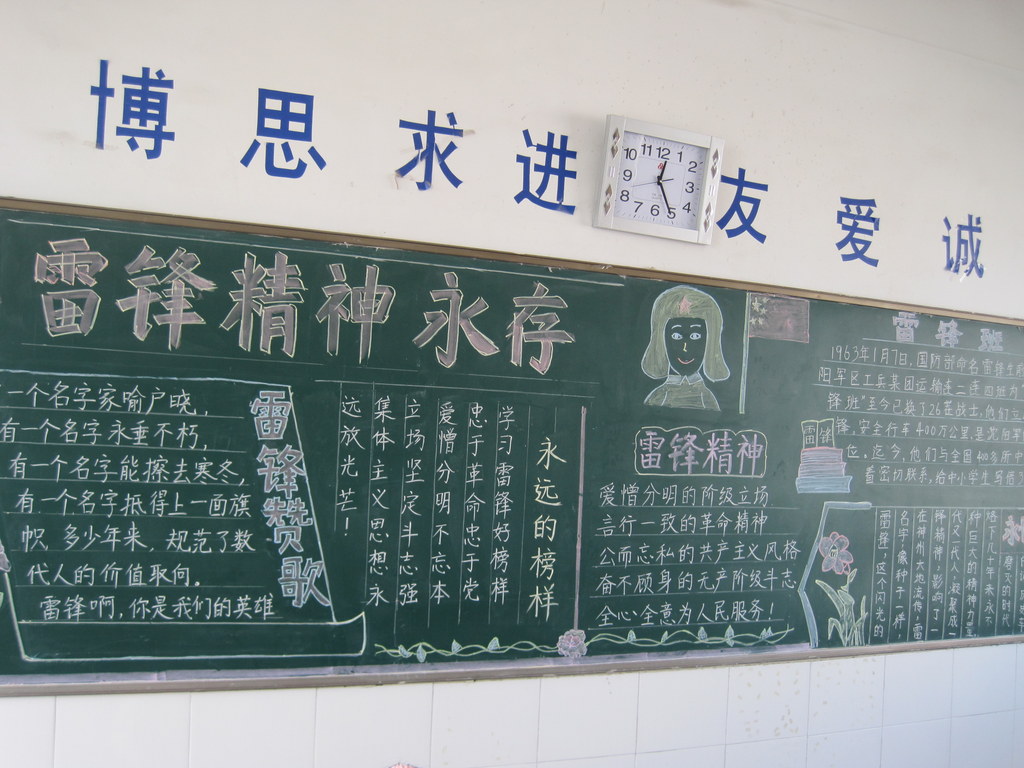 博思求进 友爱诚
10 11 12 1 2 3 4 5 6 7 8 9
雷锋精神永存
一个名字家喻户晓，
有一个名字永垂不朽，
有一个名字能擦去寒冬，
有一个名字抵得上一面旗
帜．多少年来，规范了数
代人的价值取向。
雷锋啊，你是我们的英雄
雷锋赞歌
永远的榜样
学习雷锋好榜样
忠于革命忠于党
爱憎分明不忘本
立场坚定斗志强
集体主义思想永
远放光芒！
雷锋精神
爱憎分明的阶级立场
言行一致的革命精神
公而忘私的共产主义风格
奋不顾身的无产阶级斗志
全心全意为人民服务！
雷锋班
1963年1月7日，国防部命名雷锋生前
阳军区工兵某团运输连二连四班为
锋班"至今已换了26茬战士，他们立
锋，安全行车400万公里，是沈阳军
位。迄今，他们与全国400多所中
着密切联系，给中小学生写信
雷锋
永
的时代
年来永不
种巨大的精神力量
代又一代人，凝聚成一
锋精神，影响了一
在神州大地流传，雷
名字，像种子一样，
雷锋，这个闪光的